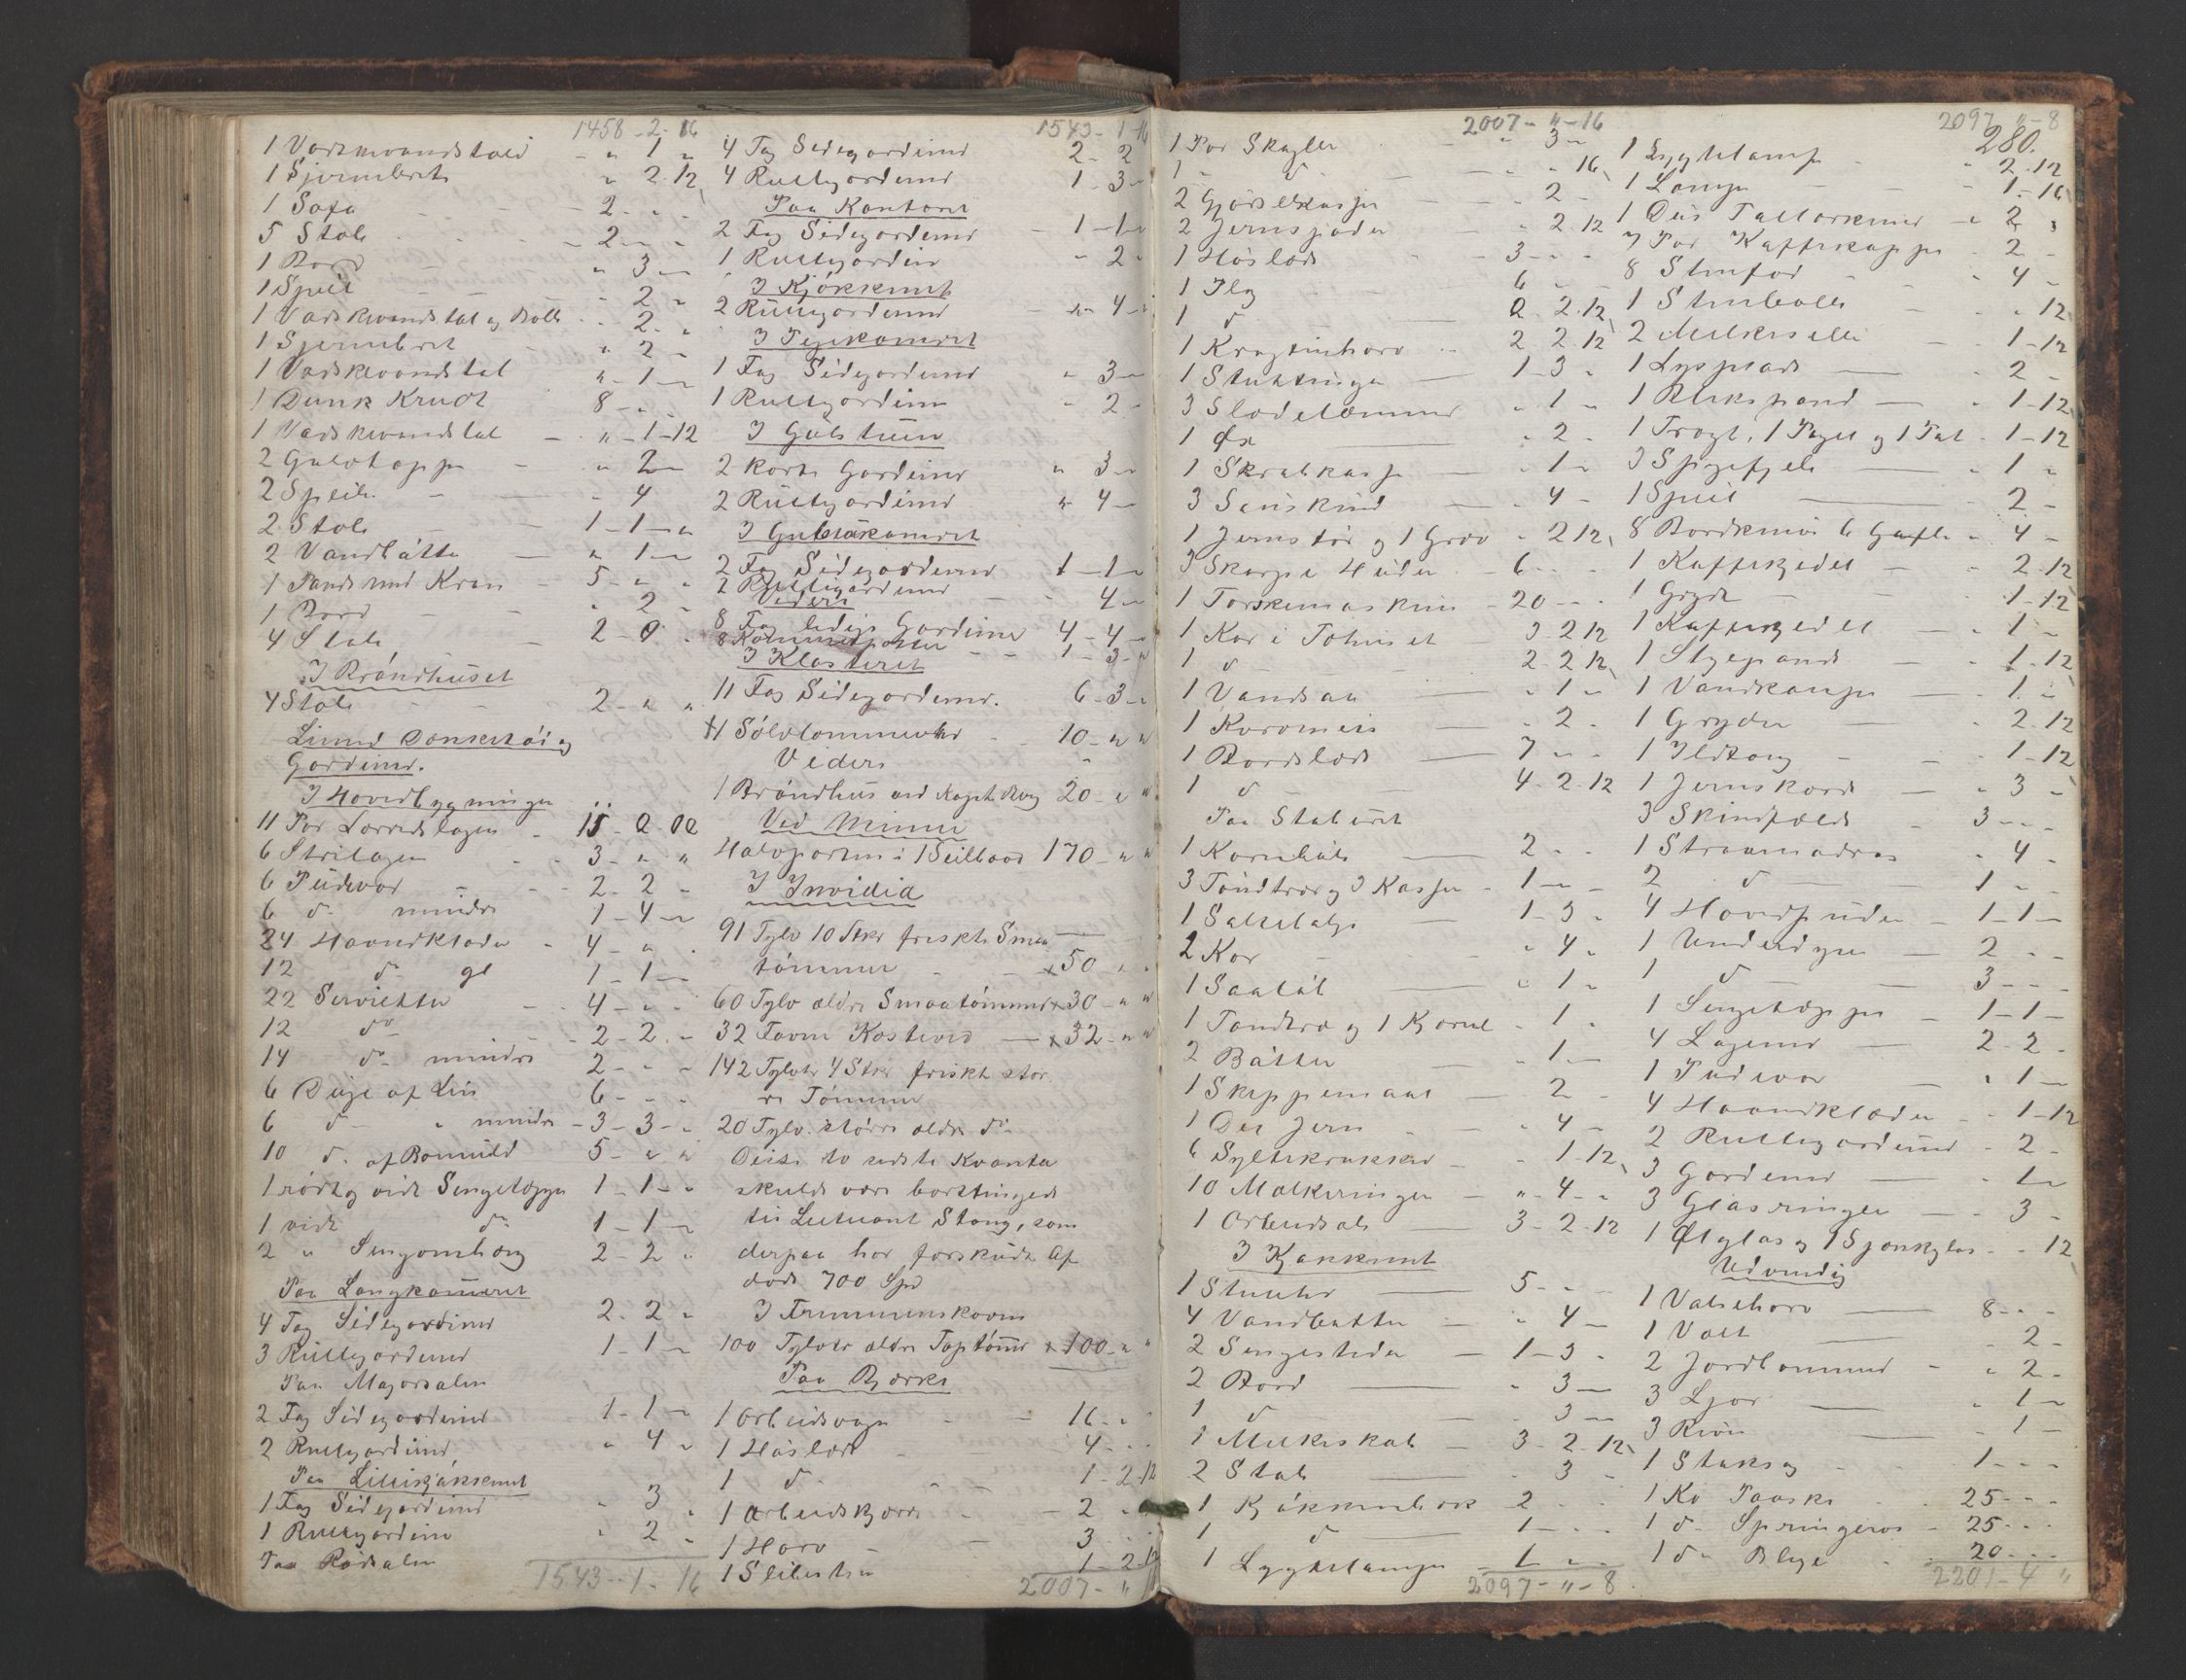 1458 - 2 - 16
1 Vaskevandstold - " 1 "
1 Spillebret " 2. 12
1 Sofa 2 - " .
5 Stole - 2 - "
1 Bord " 3 -
1 Speil - 2 -
1 Vaskevandstel og Bolle - 2. "
1 Spillebret " 2 -
1 Vaskevandstel " - 1 -
1 Dunk Krudt 8 - "
1 Vaskevandstel - " - 1 - 12
2 Gulvtæppe - " 2 -
2 Speile - - 4
2 Stole 1 - 1 - "
2 Vandbøtte - " 1 -
1 Pande med Kran - 5 - " "
1 Bord - 2 -
4 Stole 2 - 0 .
I Brøndhuset
4 Stole 2 - " "
Linned Dækketøi og
Gardiner.
I Hovedbygningen
11 Par Lærredslagen - 15 - 0. 00
6 Strilagen - 3 - " "
6 Pudevar - 2 - 2 -
6 do mindre 1 - 4 -
24 Haandklæder - 4 - " .
12 do gl 1 - 1 -
22 Servietter - 4 - " .
12 do - 2 - 2 -
14 do mindre 2 - " -
6 Duge af Lin 6 - " .
6 do " mindre - 3 - 3 - "
10 do af Bomuld 5 - " "
1 rødt og hvidt Sengetæppe 1 - 1 - "
1 hvidt do 1 - 1 -
2 " Sengeomhæng 2 - 2 "
Paa Langkammeret
4 Fag Sidegardiner 2. 2 "
3 Rullegardiner 1 - 1 -
Paa Majorsalen
2 Fag Sidegardiner 1 - 1 -
2 Rullegardiner " 4 "
Paa Lillekjøkkenet
1 Fag Sidegardiner " 3 "
1 Rullegardine " 2 -
Paa Rødsalen
1543 - 1 - 16
1543 - 1 - 16
4 Fag Sidegardiner 2 - 2
4 Rullegardiner 1 - 3 -
Paa Kontoret
2 Fag Sidegardiner - 1 - 1 -
1 Rullegardin - 2 -
I Kjøkkenet
2 Rullegardiner - " - 4 -
I Pigekamret
1 Fag Sidegardiner " 3 -
1 Rullegardine - 2 -
I Gulstuen
2 korte Gardiner " 3 -
2 Rullegardiner " 4 -
I Gulstukamret
2 Fag Sidegardiner 1 - 1 -
2 Rullegardiner - - 4 -
Videre
8 Fag ledige Gardiner 4 - 4 -
1 - 3 - "
I Klosteret
11 Fag Sidegardiner. 6 - 3 -
1 Sølvlommeuhr - 10 - " "
Videre
1 Brøndhus ved 20 - " "
Ved Minne
Halvparten i 1 Seilbaad 170 - " "
I Invidia
91 Tylv 10 Stkr friskt Smaa
tømmer - - x 50 - " .
60 Tylv ældre Smaatømmer x 30 - " "
32 Favne Kasteved - x 32 - " "
142 Tylvter 4 Stkr friskt stør
re Tømmer
20 Tylv. større ældre do
Disse to sidste Kvanta
skulde være borttinget
til Lieutnant Stang, som
derpaa har forskudt Af
døde 700 Spd
I Temmenskoven
100 Tylvter ældre Toptømr x 100 - " "
Paa Bjerke
1 Arbeidsvogn - - 16 - " .
1 Høslæde - 4 - . .
1 do - - 1 - 2 - 12
1 Arbeidskjærre - - 2 - " .
1 Harv - - 3 - . .
1 Slibesten 1 - 2 - 12
2007 - "
2007 - " - 16
1 Par Skagler - " 3 -
1 " do - - " 16
2 Gjødselkasser - 2 -
2 Jernspader " 2 12
1 Høslæde - 3 - - .
1 Plog 6 - " .
1 do 0 2. 12
1 Krogtindharv - 2 2. 12
1 Stuttinge - 1 - 3 -
3 Slædelemmer " 1 "
1 Øx - 2 .
1 Skrabkasse - " 1 "
3 Saueskind - " 4 -
1 Jernstør og 1 Grev - 2 12
3 Skarpe Huder - 6 - - .
1 Tærskemaskine - 20 - - .
1 Kar i Tohuset - 3 2 12
1 do 2. 2 12
1 Vandsaa - " 1 -
1 Kurvmeis - " 2 .
1 Bordslæde - 7 - " .
1 do - 4. 2. 12
Paa Staburet
1 Kornbøle - 2 - .
3 Tøndtrær og 3 Kasser - 1 - -
1 Saltetalje - 1 - 3 .
2 Kar - " 4 .
1 Saatøl - " 1 -
1 Tøndtræ og 1 Kjørrel - 1 .
2 Bøtter - 1 -
1 Skjeppemaal - 2 -
1 Del Jern - " 4 -
6 Syltekrukker - - 1 12
10 Mælkeringer - " - 4 - "
1 Arbeidsale - 3 - 2 - 12
I Kjøkkenet
1 Stueuhr - 5 - - .
4 Vandbøtter - " 4 -
2 Sengesteder - 1 - 3 .
2 Bord - " 3 -
1 do - - 3 -
1 Melkeskab - 3 - 2. 12
2 Stole - 3 -
1 Kjøkkenbænk - 2 - . .
1 do - 1 - . .
1 Lygtelampe - 1 - " .
2097 - " - 8
2097 - " - 8
280.
1 Lygtelampe - " 2. 12
1 Lampe - - 1. 16
1 Dus Tallerkener - " 2 "
7 Par Kaffekopper - 2 -
8 Stenfad - " 4 -
1 Stenbolle - " 12
2 Melkesiller - 1 - 12
1 Lysplade - 2 -
1 Blikspand - " 1 - 12
1 Trogt, 1 Pøgel og 1 Fat - 1 - 12
3 Spyefjele - " 1 "
1 Speil - 2 -
8 Bordknive 6 Gafle - 4 -
1 Kaffekjedel - - 2. 12
1 Gryde - - 1 - 12
1 Kaffekjedel - " 1 -
1 Stegepande - - 1. 12
1 Vandkande - 1. "
1 Gryder - 2. 12
1 Ildtang - - 1 - 12
1 Jernskard - " 3 -
3 Skindfælde - 3 - - .
1 Straamadras " 4 -
2 do - 1 - -
4 Hovedpuder - 1 - 1 -
1 Underdyne - 2 - -
1 do - 3 - - .
1 Sengetæppe - 1 - 1 -
4 Lagener - 2 - 2 -
1 Pudevar - " 1 -
4 Haandklæder - - 1 - 12
2 Rullegardiner - 2 -
3 Gardiner - - 1 -
3 Glasringer - - 3 -
1 Ølglas og 1 Spidsglas - - 12
Udvendig
1 Valseharv - 8 - - .
1 Valt - 2 -
2 Jordbommer - " 2 -
3 Ljor - " 1 -
3 River - 1 -
1 Staksag - 1 - - -
1 Ko Paaske - 25 - - .
1 do Springeros - 25 - - .
1 do Blege - 20 - - .
2201 - 4 "